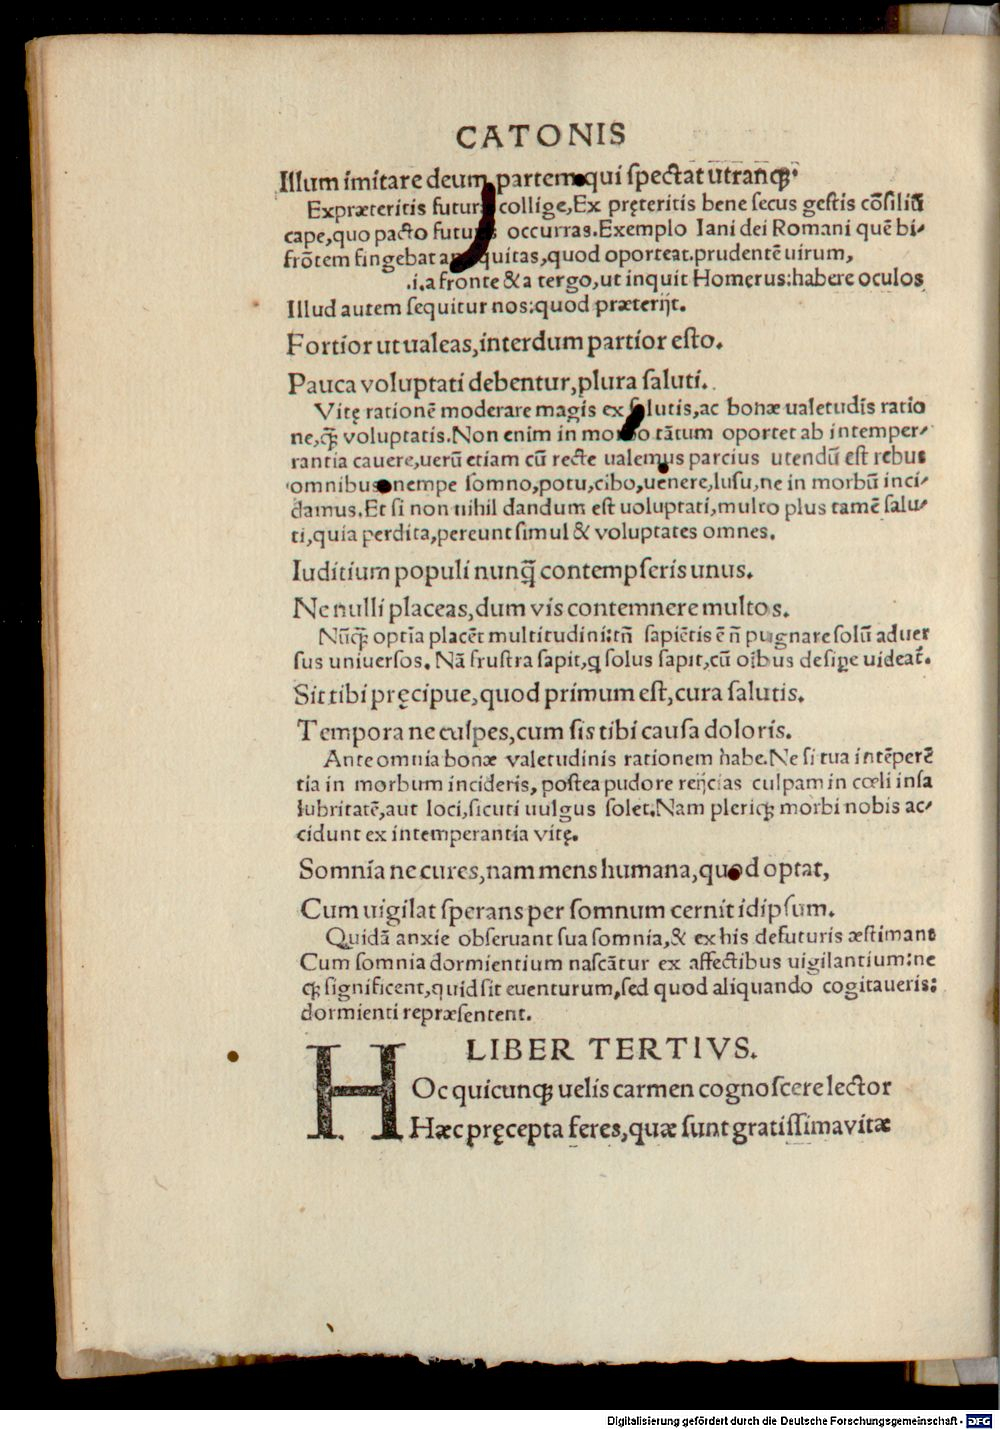 CATONIS
Illum imitare deum partem qui spectat utranqꝫ.
Expræteritis futur collige, Ex pręteritis bene secus gestis cõsiliũ
cape, quo pacto futu occurras. Exemplo Iani dei Romani quẽ bi⸗
frõtem fingebat an quitas, quod oporteat. prudentẽ uirum,
.i. a fronte & a tergo, ut inquit Homerus: habere oculos
Illud autem sequitur nos: quod præterijt.
Fortior ut ualeas, interdum partior esto.
Pauca voluptati debentur, plura saluti.
Vitę rationẽ moderare magis ex salutis, ac bonæ ualetudis ratio
ne, qꝫ̃ voluptatis. Non enim in morbo tãtum oportet ab intemper⸗
rantia cauere, uerũ etiam cũ recte ualemus parcius utendũ est rebus
omnibus nempe somno, potu, cibo, uenere, lusu, ne in morbũ inci⸗
damus. Et si non nihil dandum est uoluptati, multo plus tamẽ salu⸗
ti, quia perdita, pereunt simul & voluptates omnes.
Iuditium populi nunq̃ contempseris unus.
Ne nulli placeas, dum vis contemnere multos.
Nũqꝫ̃ optĩa placẽt multitudini: tñ sapiẽtis ẽ ñ pugnare solũ aduer
sus uniuersos. Nã frustra sapit, q solus sapit, cũ oĩbus desiꝑe uideat̃.
Sit tibi pręcipue, quod primum est, cura salutis.
Tempora ne culpes, cum sis tibi causa doloris.
Ante omnia bonæ valetudinis rationem habe. Ne si tua intẽperẽ
tia in morbum incideris, postea pudore reijcias culpam in cœli insa
lubritatẽ, aut loci, sicuti uulgus solet. Nam pleriqꝫ morbi nobis ac⸗
cidunt ex intemperantia vitę.
Somnia ne cures, nam mens humana, quod optat,
Cum uigilat sperans per somnum cernit idipsum.
Quidã anxie obseruant sua somnia, & ex his defuturis æstimant
Cum somnia dormientium nascãtur ex affectibus uigilantium: ne
qꝫ significent, quid sit euenturum, sed quod aliquando cogitaueris:
dormienti repræsentent.
LIBER TERTIVS.
HOc quicunqꝫ uelis carmen cognoscere lector
Hæc pręcepta feres, quæ sunt gratissima vitæ
Digitalisierung gefördert durch die Deutsche Forschungsgemeinschaft - DFG